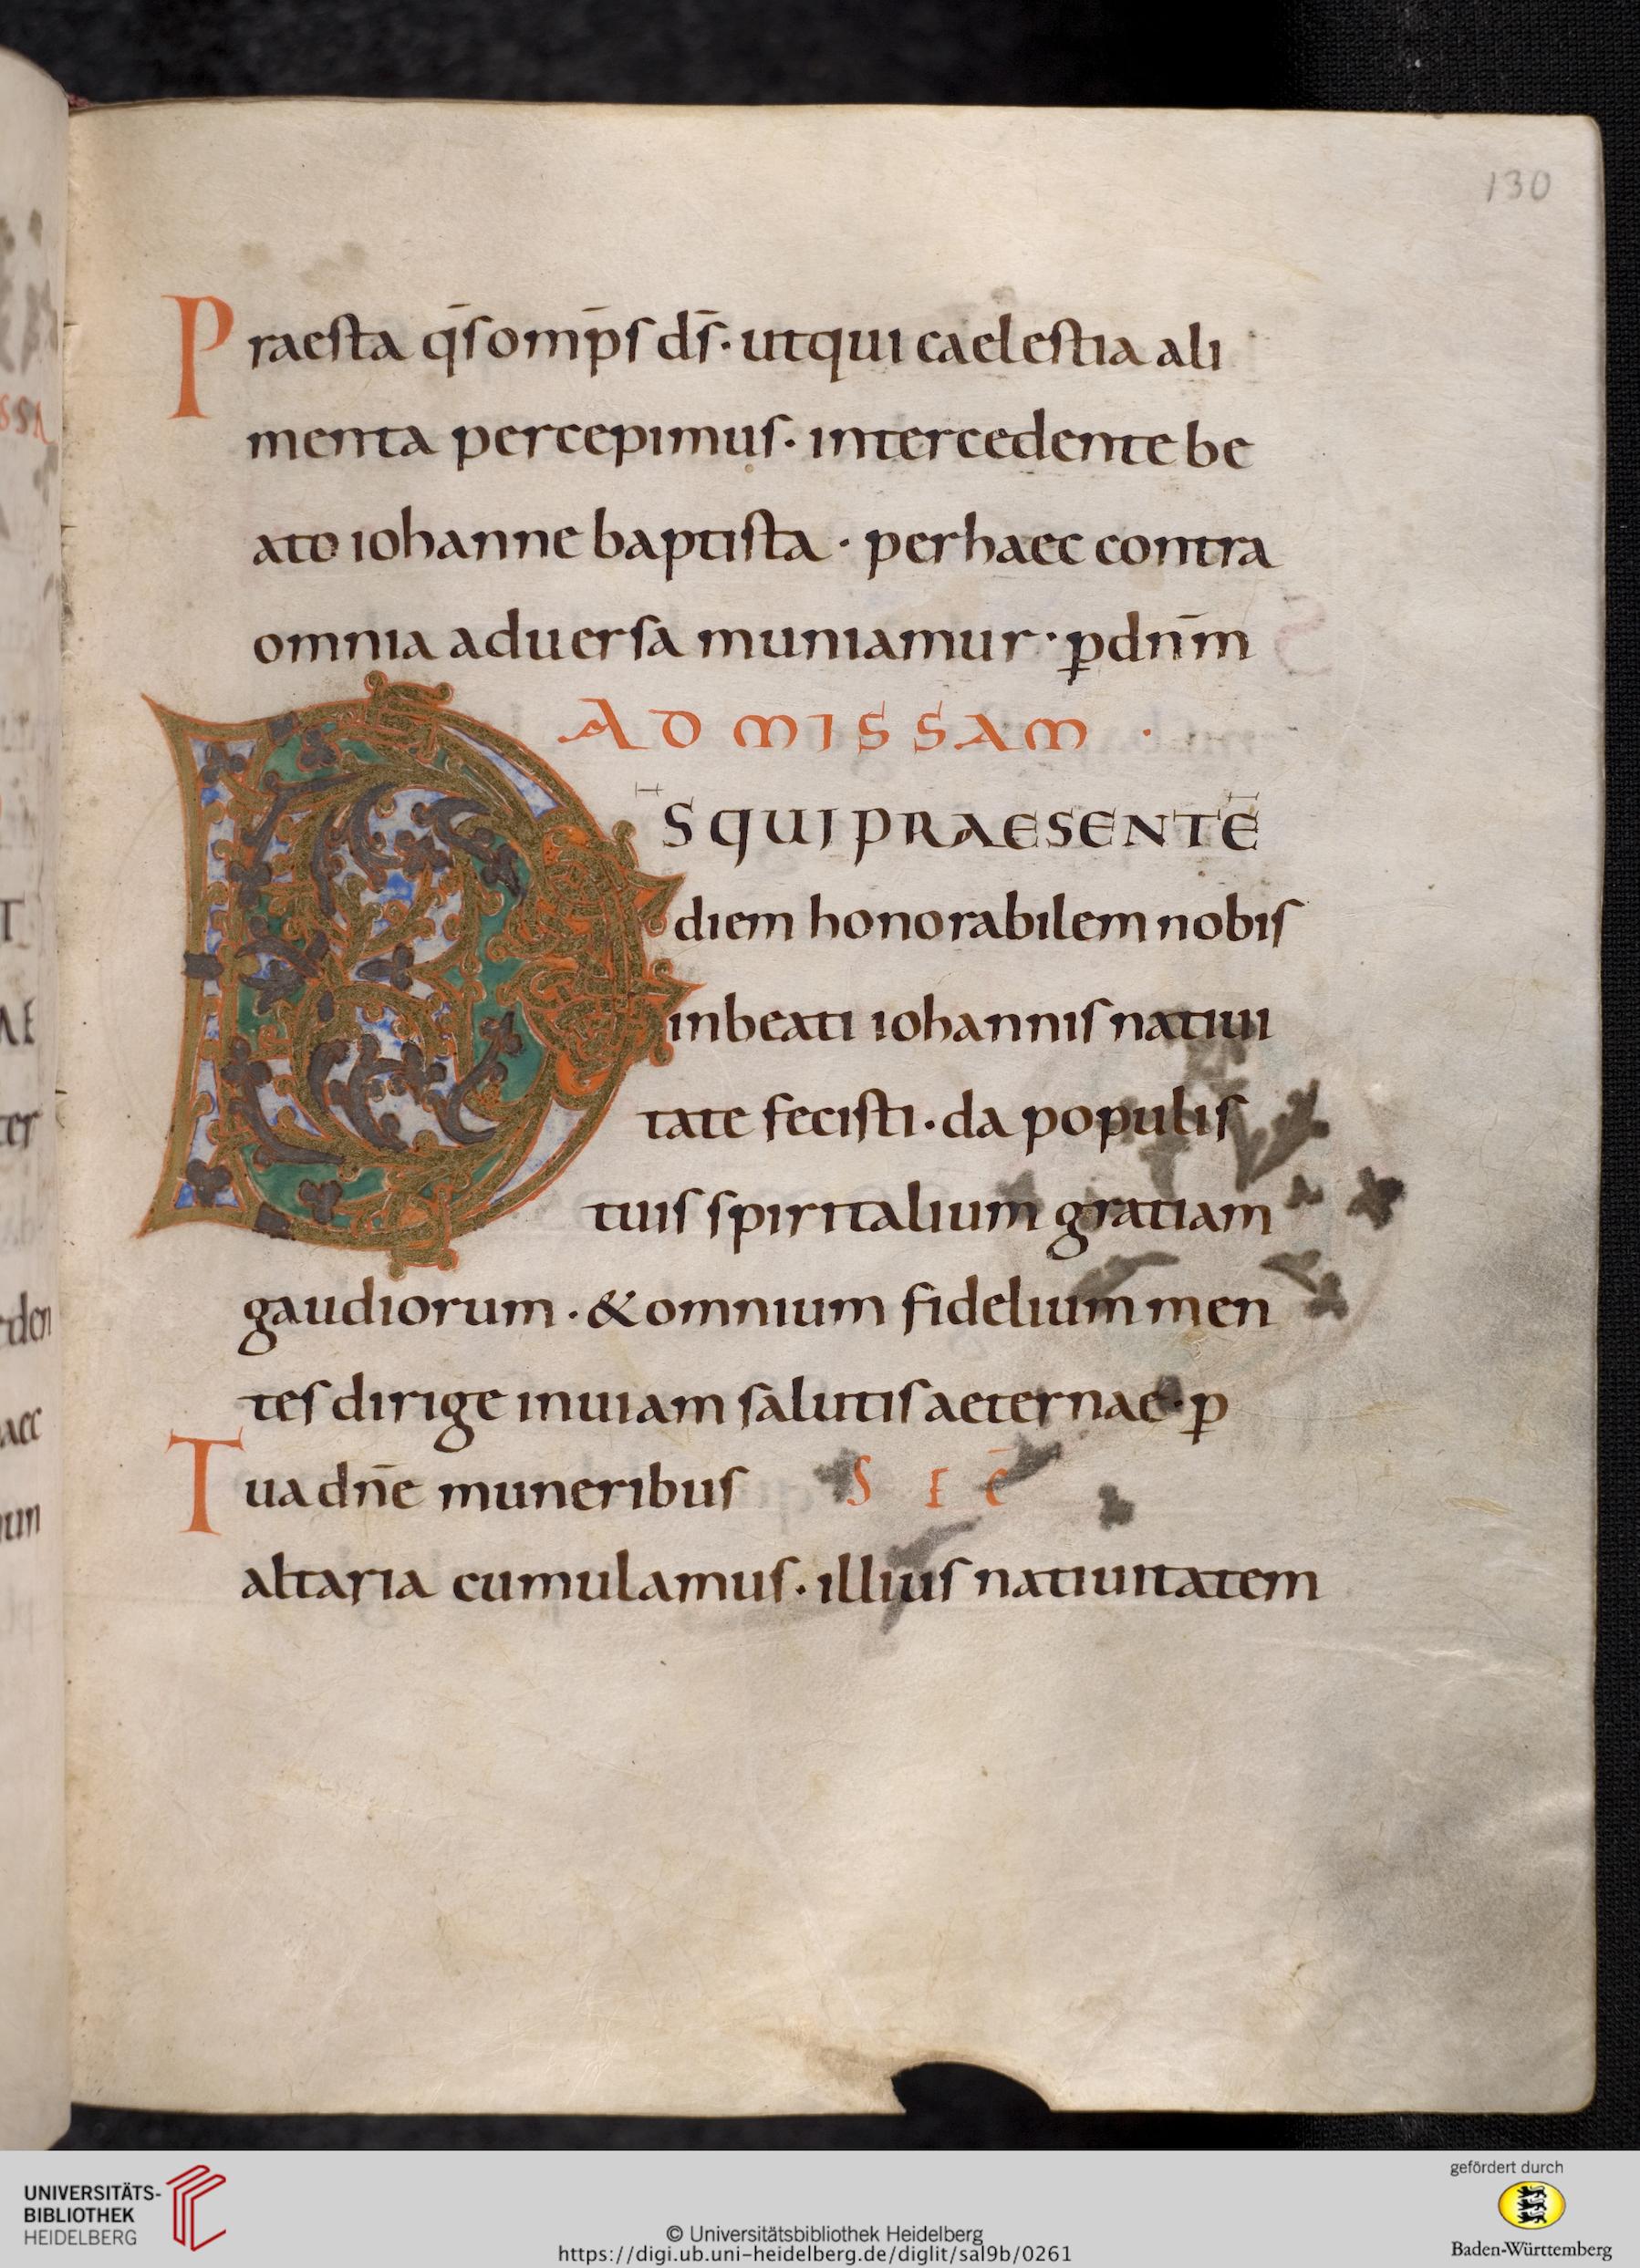 130
Praesta q̄s omp̄s d̄s · ut qui caelestia ali
menta percepimus · intercedente be
ato iohanne baptista · per haec contra
omnia aduersa muniamur · ꝑ dn̄m
AD MISSAM ·
D̄S QUI PRAESENTĒ
diem honorabilem nobis
in beati iohannis natiui
tate fecisti · da populis
tuis spiritalium gratiam
gaudiorum · & omnium fidelium men
tes dirige in uiam salutis aeternae · ꝑ
Tua dn̄e muneribus SEC̄
altaria cumulamus · illius natiuitatem
UNIVERSITÄTS-
BIBLIOTHEK
HEIDELBERG
© Universitätsbibliothek Heidelberg
https://digi.ub.uni-heidelberg.de/diglit/sal9b/0261
gefördert durch
Baden-Württemberg